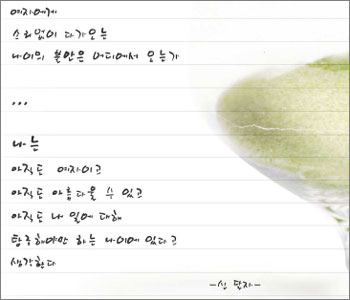 여자에게
소리없이 다가오는
나이의 불안은 어디에서 오는가
...
나는
아직도 여자이고
아직도 아름다울 수 있고
아직도 내 일에 대해
탐구해야만 하는 나이에 있다고
생각한다
-신 달자-